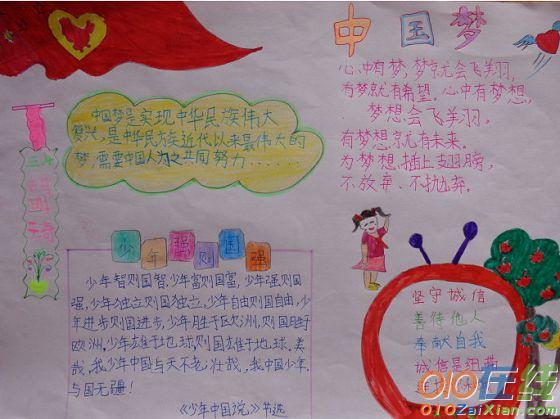 中国梦
心中有梦,梦就会飞翔,
有梦就有希望。心中有梦想,
梦想会飞翔,
有梦想,就有未来。
为梦想,插上翅膀,
不放弃、不抛弃。
中国梦是实现中华民族伟大
复兴,是中华民族近代以来最伟大的
梦,需要中国人为之共同努力......
少年强则国强
少年智则国智,少年富则国富,少年强则国
强,少年独立则国独立,少年自由则国自由,少
年进步则国进步,少年胜于欧洲,则国胜于
欧洲,少年雄于地球,则国雄于地球,美
哉,我少年中国与天不老,壮哉,我中国少年,
与国无疆!
《少年中国说》节选
坚守诚信
善待他人
奉献自我
诚信是纽带
010在线
010ZaiXian.com